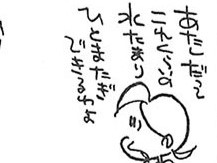 あたしだって
これくらいの
水たまり
ひとまたぎ
できるわよ